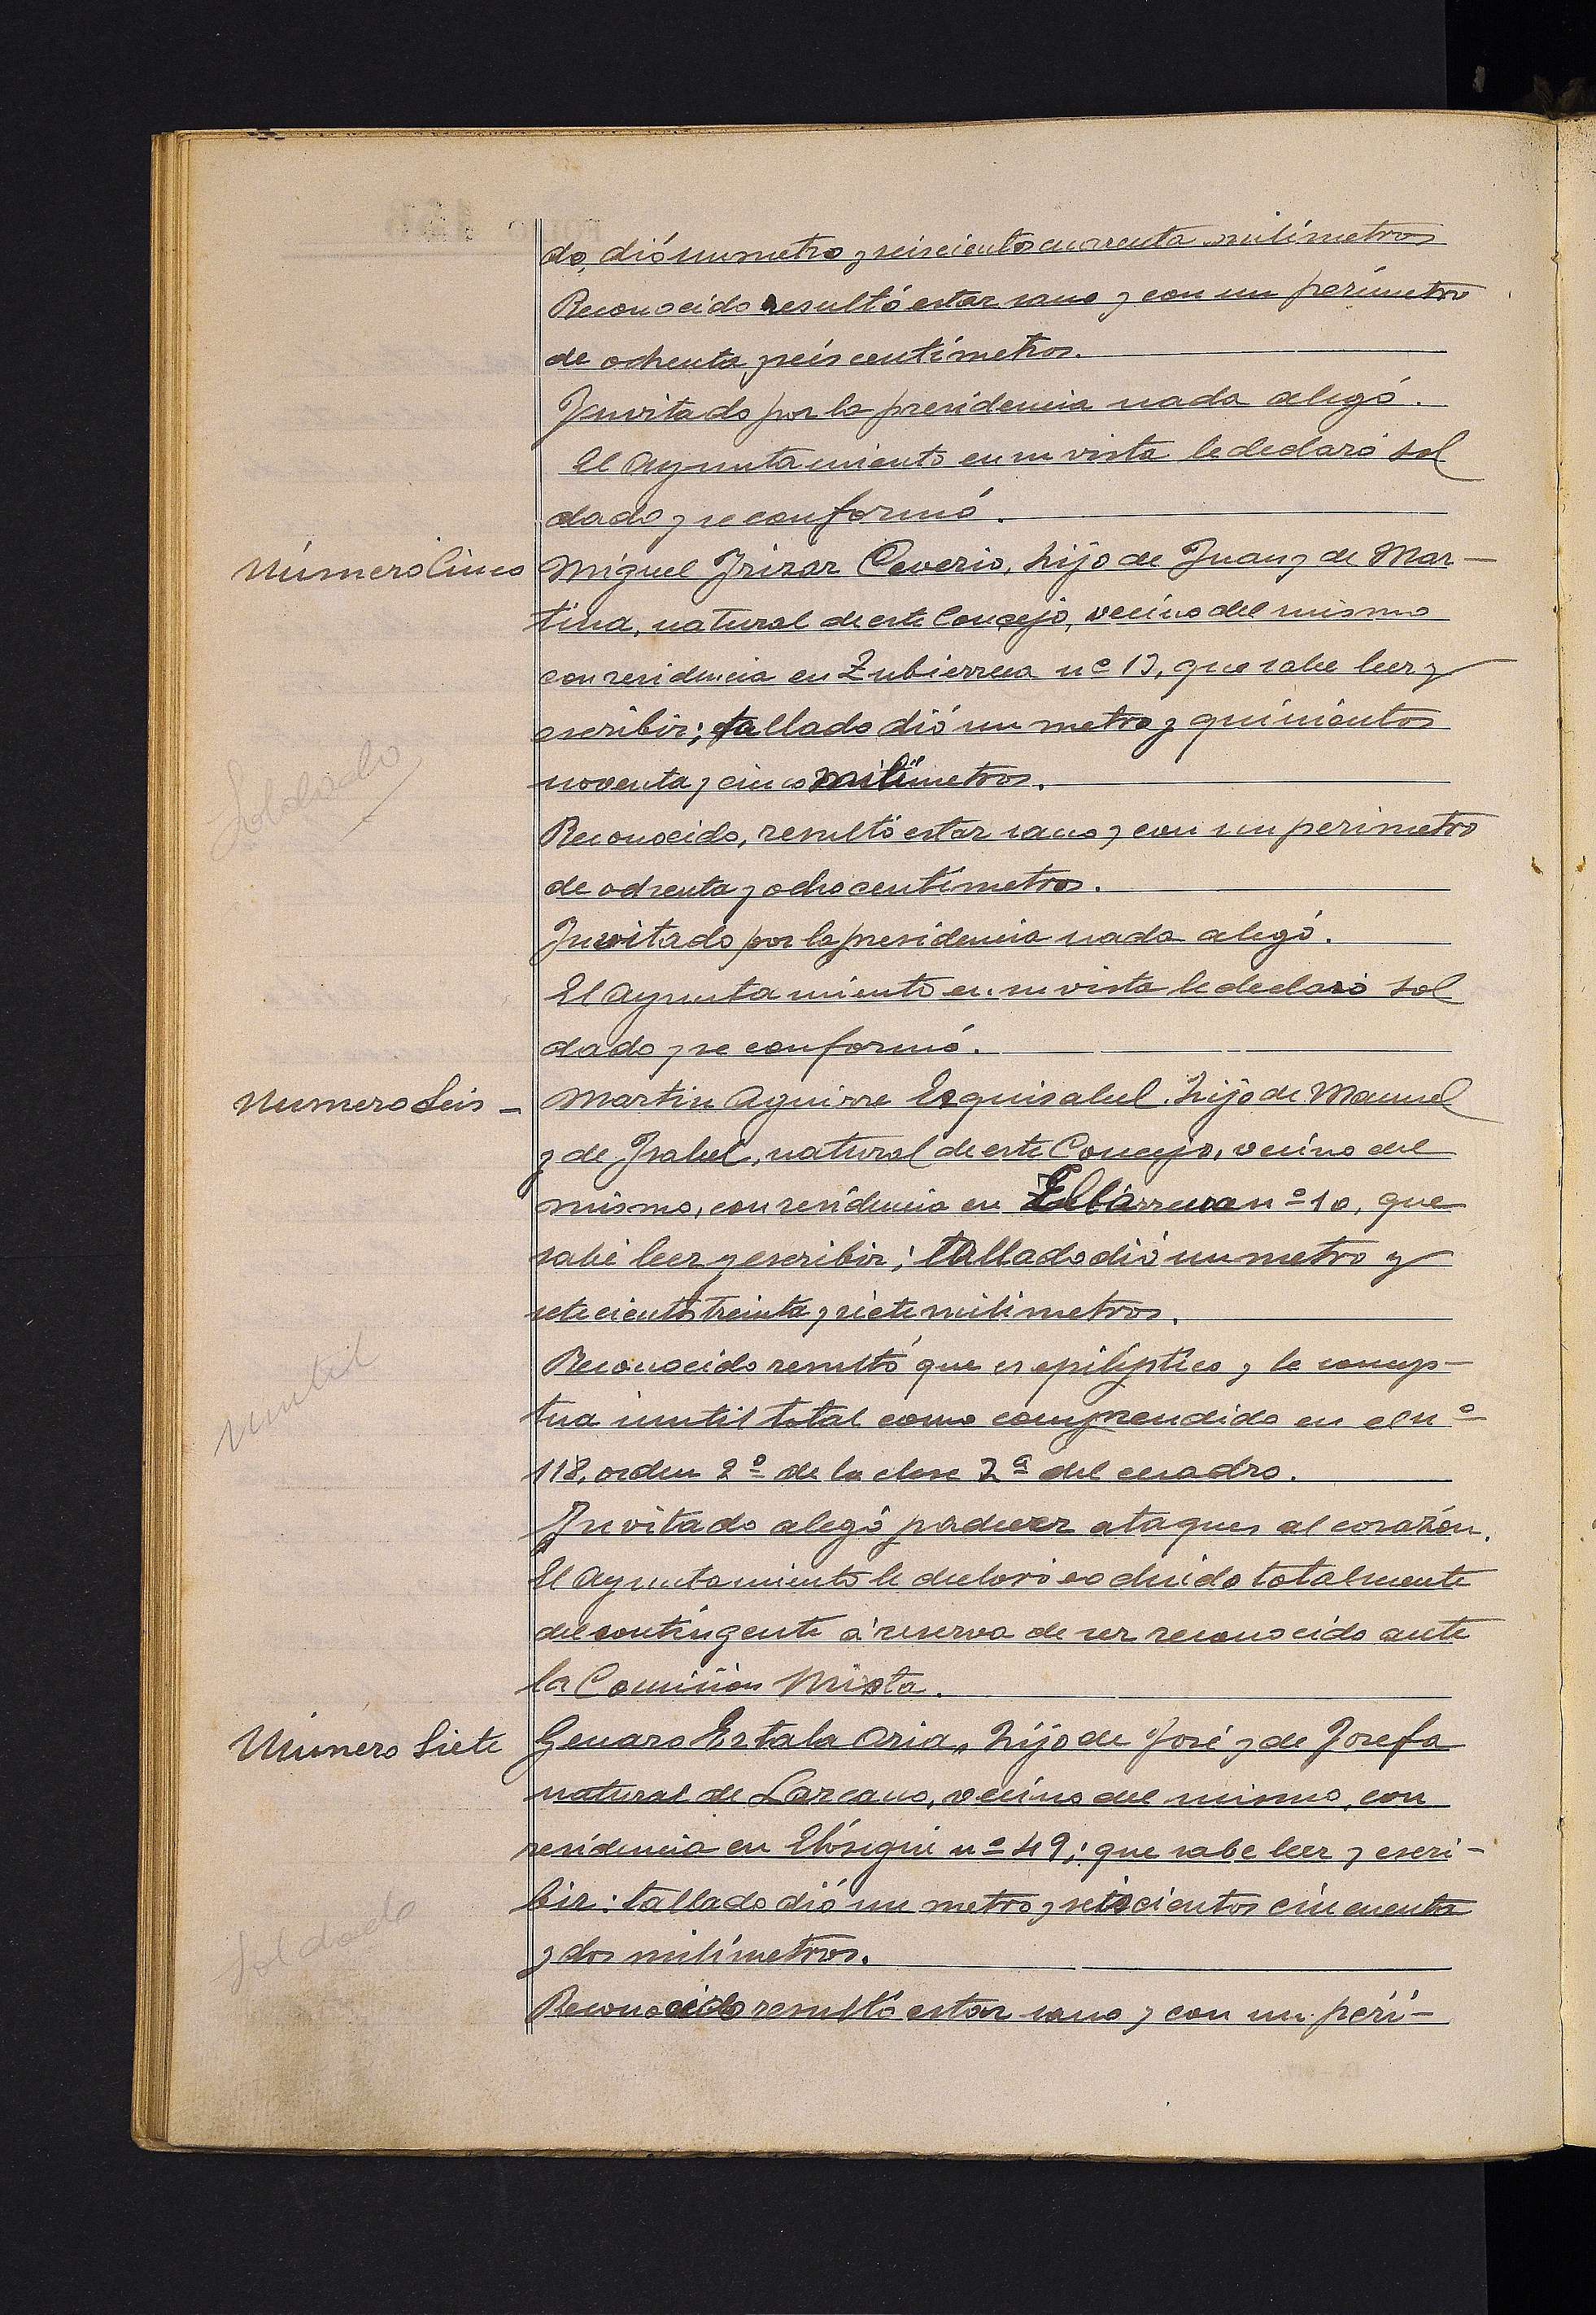 do, dió un metro y seiscientos cuarenta milímetros
Reconocido resultó estar sano y con un perímetro
de ochenta y seis centímetros.
Invitado por la presidencia nada alegó.
El Ayuntamiento en su vista le declaró sol
dado y se conformó.
Número Cinco
Miguel Irizar Ceverio, hijo de Juan y de Mar-
tina, natural de este Concejo, vecino del mismo
con residencia en Zubierreca nº 13, que sabe leer y
escribir; tallado dió un metro y quinientos
noventa y cinco milímetros.
Soldado
Reconocido, resultó estar sano y con un perimetro
de ochenta y ocho centímetros.
Invitado por la presidencia nada alegó.
El Ayuntamiento en su vista le declaró sol
dado y se conformó.
Numero Seis -
Martin Aguirre Esquisabel, hijo de Manuel
y de Isabel, natural de este Concejo, vecino del
mismo, con residencia en nº 10, que
sabe leer y escribir; tallado dió un metro y
setecientos treinta y siete milimetros.
Reconocido resultó que es epiléptico y le concep-
tua inutil total como comprendido en el nº
inutil
118, orden 2º de la clase 2ª del cuadro.
Invitado alegó padecer ataques al corazón.
El Ayuntamiento le declaró excluido totalmente
del contingente á reserva de ser reconocido ante
la Comisión Mixta.
Número Siete
Genaro Estala Oria, hijo de José y de Josefa
natural de Lazcano, vecino del mismo, con
residencia en Elósegui nº 49; que sabe leer y escri-
bir: tallado dió un metro y seiscientos cincuenta
y dos milímetros.
Soldado
Reconocido resultó estar sano y con un perí-